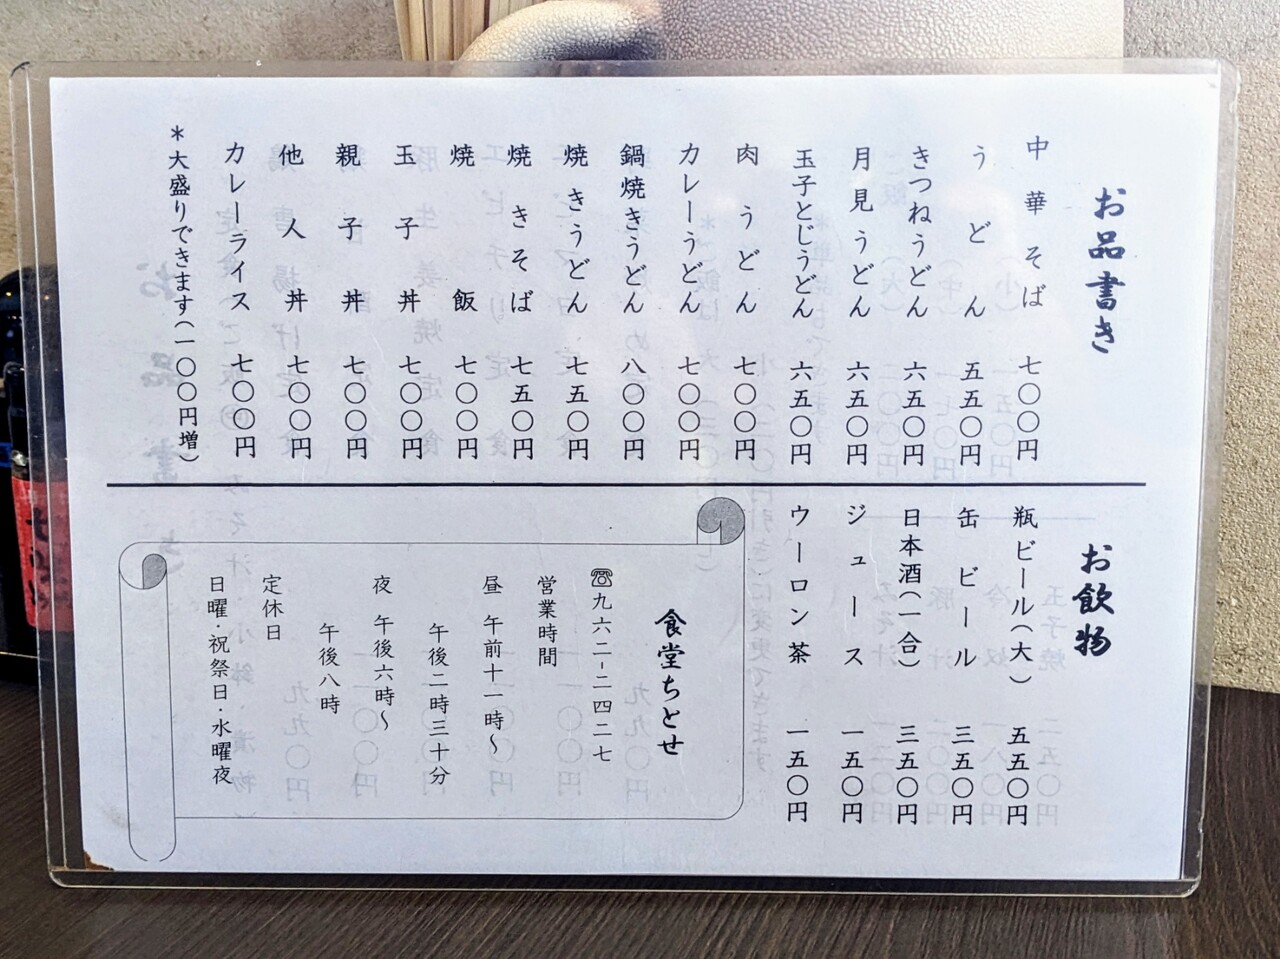 お品書き
中華そば 七〇〇円
うどん 五五〇円
きつねうどん 六五〇円
月見うどん 六五〇円
玉子とじうどん 六五〇円
肉うどん 七〇〇円
カレーうどん 七〇〇円
鍋焼きうどん 八〇〇円
焼きうどん 七五〇円
焼きそば 七五〇円
焼飯 七〇〇円
玉子丼 七〇〇円
親子丼 七〇〇円
他人丼 七〇〇円
カレーライス 七〇〇円
＊大盛りできます(一〇〇円増)
お飲物
瓶ビール(大) 五五〇円
缶ビール 三五〇円
日本酒(一合) 三五〇円
ジュース 一五〇円
ウーロン茶 一五〇円
食堂ちとせ
☎九六二-二四二七
営業時間
昼 午前十一時〜
午後二時三十分
夜 午後六時〜
午後八時
定休日
日曜・祝祭日・水曜夜